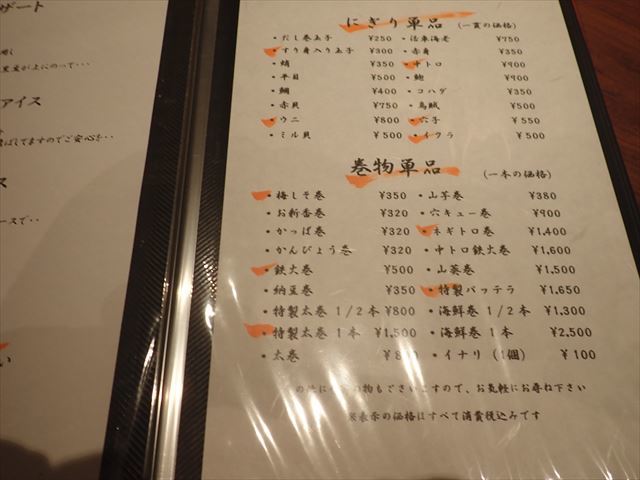 ザート
アイス
ばしてますのでご安心を‥
ースで‥
にぎり単品 (一貫の価格)
・だし巻玉子 ¥250 ・活車海老 ¥750
・すり身入り玉子 ¥300 ・赤身 ¥350
・蛸 ¥350 ・中トロ ¥900
・平目 ¥500 ・鮑 ¥900
・鯛 ¥400 ・コハダ ¥350
・赤貝 ¥750 ・烏賊 ¥500
・ウニ ¥800 ・穴子 ¥550
・ミル貝 ¥500 ・イクラ ¥500
巻物単品 (一本の価格)
・梅しそ巻 ¥350 ・山芋巻 ¥380
・お新香巻 ¥320 ・穴キュー巻 ¥900
・かっぱ巻 ¥320 ・ネギトロ巻 ¥1,400
・かんぴょう巻 ¥320 ・中トロ鉄火巻 ¥1,600
・鉄火巻 ¥500 ・山葵巻 ¥1,500
・納豆巻 ¥350 ・特製バッテラ ¥1,650
・特製太巻 1/2本 ¥800 ・海鮮巻 1/2本 ¥1,300
・特製太巻 1本 ¥1,500 ・海鮮巻 1本 ¥2,500
・太巻 ・イナリ (1個) ¥100
物もございますので、お気軽にお尋ね下さい
表示の価格はすべて消費税込みです